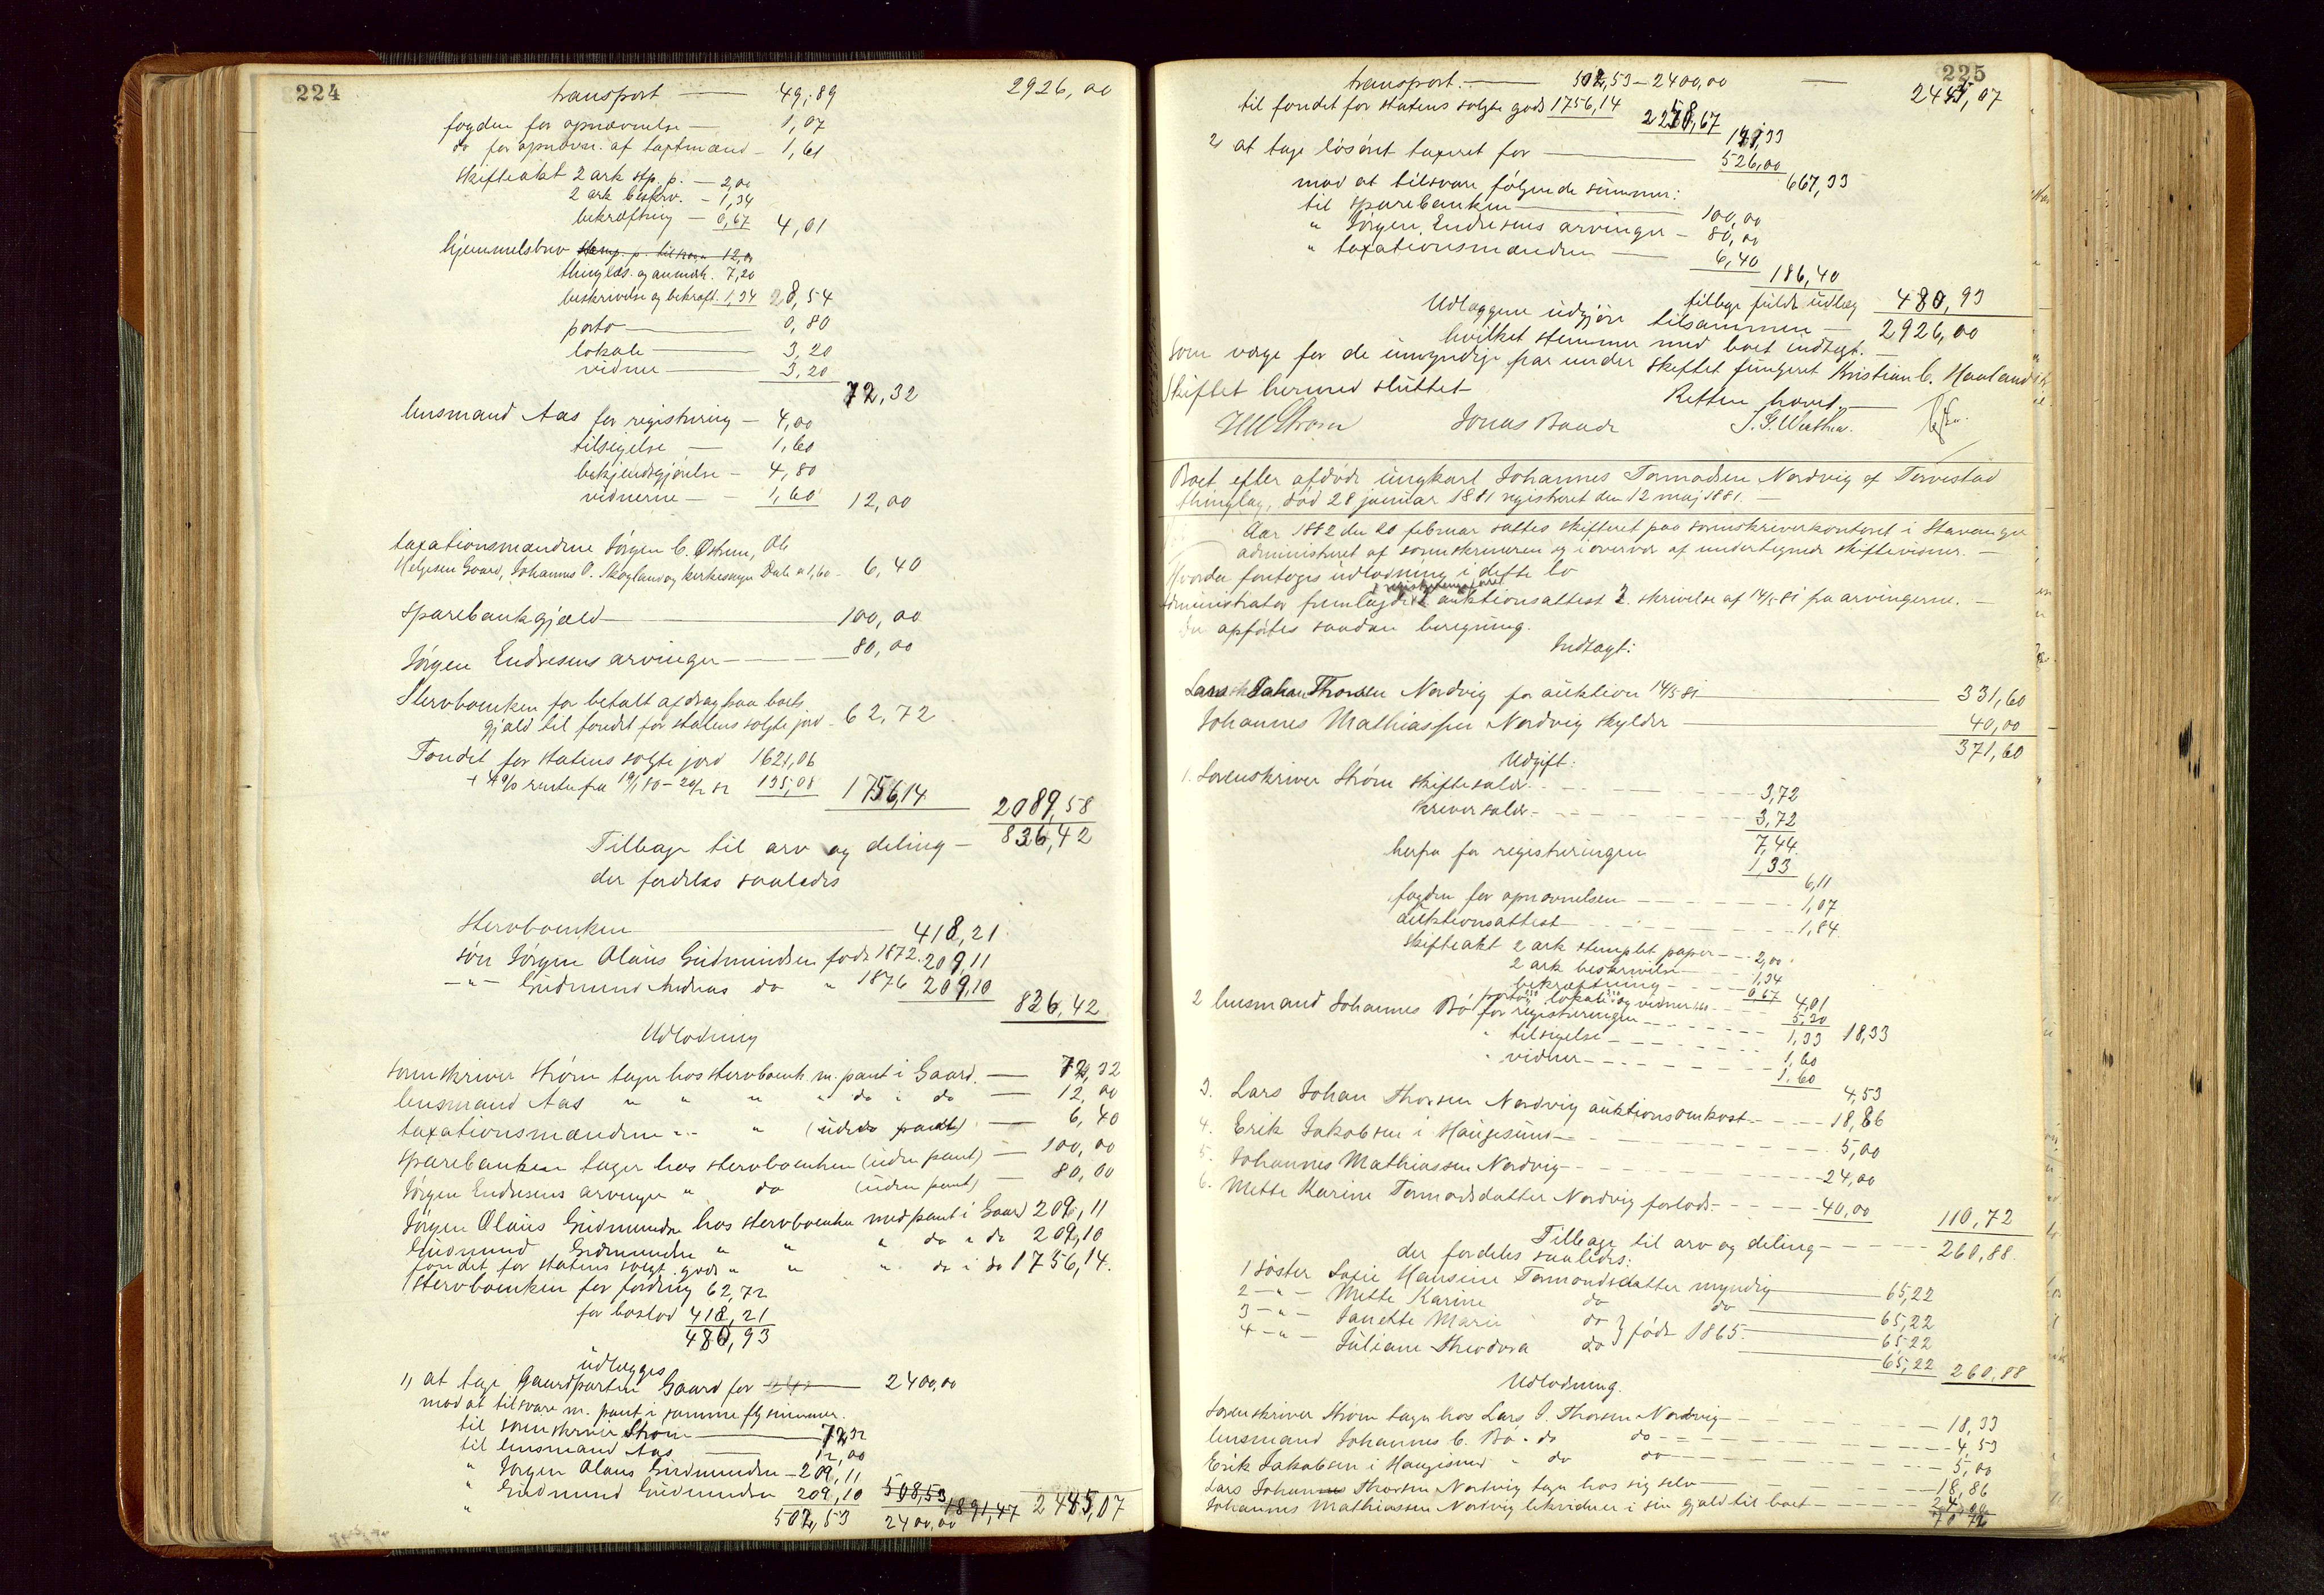 224
transport — 49,89 2926,00
fogden for opnævnelse — 1,07
do for opnævn. af taxtmænd — 1,61
Skifteakt 2 ark stp. p. — 2,00
2 ark beskriv. — 1,34
bekræftning — 0,67 4,01
hjemmelsbrev stemp. p. til 12,00
thinglæs. og anmærk. 7,20
beskrivelse og bekræft. 1,34 28,54
porto — 0,80
lokale — 3,20
vidne — 3,20
72,32
lensmand Aas for registrering — 4,00
tilsigelse — 1,60
bekjendtgjørelse — 4,80
vidnerne — 1,60 12,00
taxationsmændene Jörgen C. Østrem, Ole
Helgesen Gaard, Johannes O. Skogland og kirkesanger Dale a 1,60 - 6,40
Sparebankgjæld — 100,00
Jörgen Endresens arvinger — 80,00
Stervboenken for betalt afdrag paa boets
gjæld til fondet for statens solgte jord — 62,72
Fondet for statens solgte jord 1621,06
+ 4% rente fra 19/1 80 - 20/2 82 135,08 1756,14
2089,58
Tilbage til arv og deling — 836,42
der fordeles saaledes
Stervboenken — 418,21
søn Jörgen Olaus Gudmundsen född 1872. 209,11
—"— Gudmund Andreas do " 1876 209,10
836,42
Udlodning
sorenskriver Strøm tager hos stervboenk. m. pant i Gaard. — 72,32
lensmand Aas " " " " do i do — 12,00
taxationsmændene " " (uden pant) — 6,40
sparebanken tager hos stervboenken (uden pant) — 100,00
Jörgen Endresens arvinger " do (uden pant) — 80,00
Jörgen Olaus Gudmunds. hos stervboenken med pant i Gaard 209,11
Gudmund Gudmunds. " " " do " do 209,10
fondet for statens solgt. gods " " " do i do 1756,14.
Stervboenken for fordring 62,72
for boslod 418,21
480,93
udlægges
1, at tage Gaardparten Gaard for — 2400,00
mod at tilsvare m. pant i samme flg summer.
til sorenskriver Strøm — 72,32
til lensmand Aas — 12,00
" Jörgen Olaus Gudmundsen — 209,11
" Gudmund Gudmundsen 209,10 508,53
502,53 2400,00 1891,47 2445,07
225
transport. — 502,53 — 2400,00 — 2445,07
til fondet for statens solgte gods 1756,14 2258,67
141,33
2, at tage løsöret taxeret for — 526,00
667,33
mod at tilsvare følgende summer:
til sparebanken — 100,00
" Jörgen Endresens arvinger — 80,00
" taxationsmændene — 6,40
186,40
tilbage fuldt udlæg 480,93
Udlæggene udgjøre tilsammen — 2926,00
hvilket stemmer med boet indtægt. —
Som værge for de umyndige har under skiftet fungeret Kristian C. Haaland
Skiftet hermed sluttet Retten hævet. —
Jonas Baade
Boet efter afdøde ungkarl Johannes Tormodsen Nordvig af Torvestad
thinglag, död 28 januar 1881 registreret den 12 maj 1881. —
Aar 1882 den 20 februar sattes skifteret paa sorenskriverkontoret i Stavanger
administreret af sorenskriveren og i overvær af undertegnede skiftevidner. —
Hvorda foretoges udlodning i dette bo
Administrator fremlagde 1 auktionsattest 2. skrivelse af 14/5 81 fra arvingerne. —
Der opførtes saadan beregning.
Indtægt:
Lars Johan Thorsen Nordvig for auktion 14/5 81 — 331,60
Johannes Mathiassen Nordvig skylder — 40,00
371,60
Udgift:
1. Sorenskriver Strøm skiftesalær — 3,72
skriversalær — 3,72
7,44
herfra for registreringen 1,33
6,11
fogden for opnævnelsen — 1,07
auktionsattest — 1,84
skifteakt 2 ark stemplet papir — 2,00
2 ark beskrivelse — 1,34
bekræftning — 0,67 4,01
porto lokale og vidner — 5,30
18,33
2 lensmand Johannes Bö for registreringen — 1,33
" tilsigelse — 1,60
" vidner — 1,60
4,53
3. Lars Johan Thorsen Nordvig auktionsomkost. — 18,86
4. Erik Jakobsen i Haugesund — 5,00
5. Johannes Mathiassen Nordvig — 24,00
6. Mette Karine Tormodsdatter Nordvig forlods — 40,00
110,72
Tilbage til arv og deling — 260,88.
der fordeles saaledes:
1 søster Sofie Hansine Tormondsdatter myndig — 65,22
2 —"— Mette Karine do do — 65,22
3 —"— Janette Marie do } född 1865 — 65,22
4 —"— Juliane Theodora do — 65,22 260,88
Udlodning.
Sorenskriver Strøm tager hos Lars J. Thorsen Nordvig — 18,33
lensmand Johannes C. Bö " do do — 4,53
Erik Jakobsen i Haugesund " do do — 5,00
Lars Johan Thorsen Nordvig tager hos sig selv — 18,86
Johannes Mathiassen Nordvig likviderer i sin gjæld til boet — 24,00
70,72